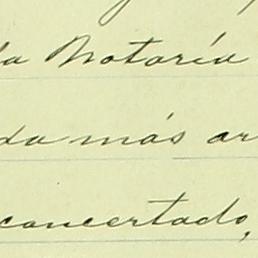 la Notaría
da más ar
concertado,